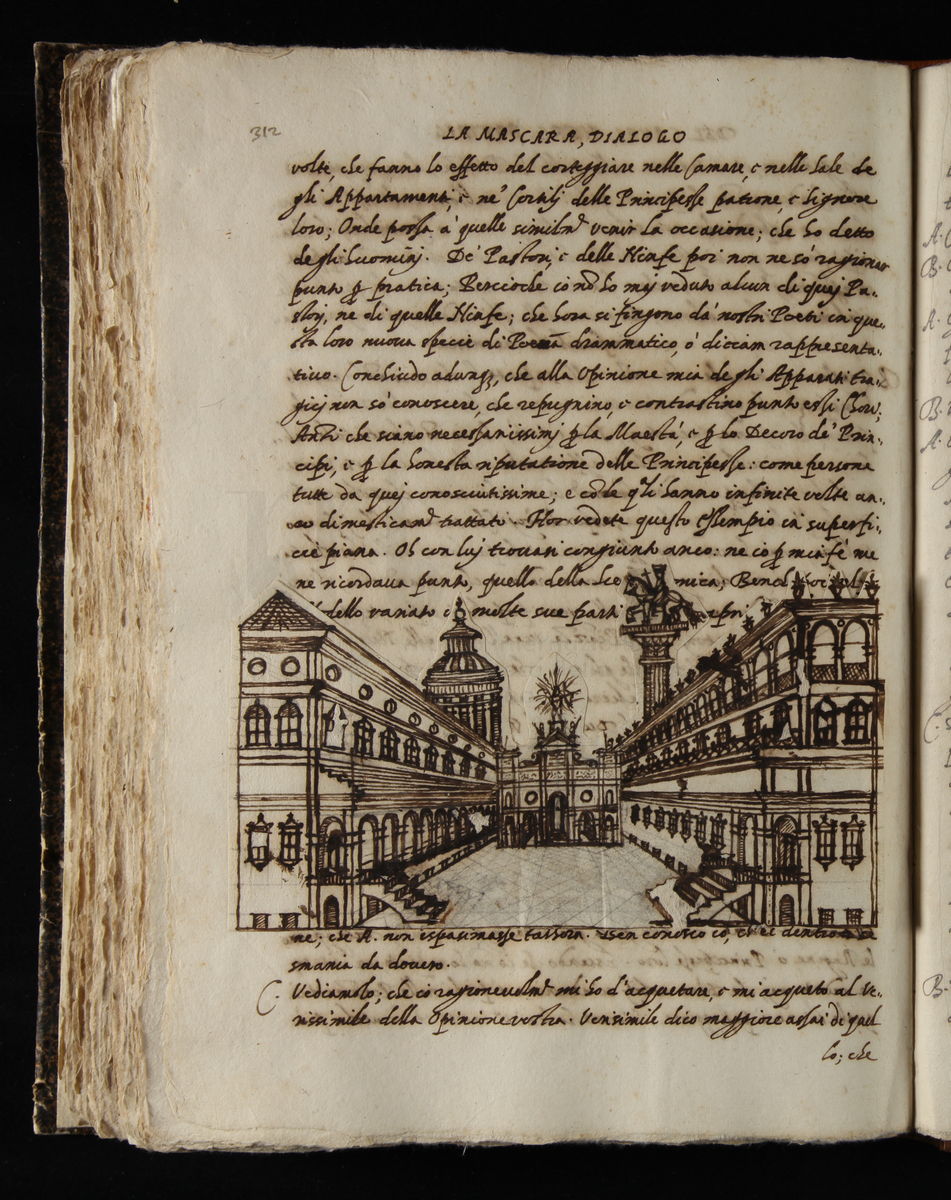 312
LA MASCARA, DIALOGO
volte, che fanno lo effetto del corteggiare nelle Camare, e nelle Sale de
gli Appartamenti, e ne' Cortilj delle Principesse patrone, e Signore
loro; Onde possa à quelle similm.te venir la occasione; che hò detto
de gli huominj. De' Pastori, e delle Ninfe poi non ne sò ragionar
punto p pratica; Percioche io nō hò maj veduto alcun di quej Pa-
storj, ne di quelle Ninfe; che hora si fingono da' nostri Poeti in que-
sta loro nuova specie di Poema drammatico, ò diciam rappresenta-
tivo. Conchiudo adunq;, che alla Opinione mia de gli Apparati tra-
gicj non sò conoscere, che repugnino, e contrastino punto essi Chori;
Anzi che siano necessarissimj p la Maestà, e p lo Decoro de' Prin-
cipi, e p la honesta riputatione delle Principesse: come persone
tutte da quej conosciutissime; e cō le q.li hanno infinite volte an-
co dimesticam.te trattato. Hor vedete questo Essempio in superfi-
cie piana. Oh con luj trovasi congiunto anco: ne io p mia fè me
ne ricordava punto, quello della Sce mica; Bench
dello variato in molte sue parti
ne; che A. non ispasimasse talhora. Ben conosco io, ch'ei dentro
smania da dovero.
C. Vediamolo; che io ragionevolm.te mi hò d'acquetare, e mi acqueto al Ve-
rissimile della Opinione vostra. Verisimile dico maggiore assai di quel
lo; che